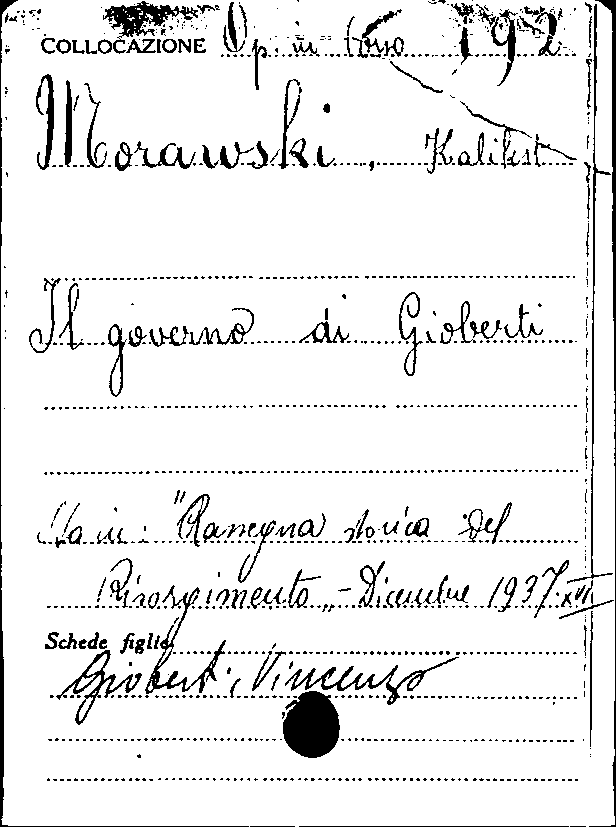 COLLOCAZIONE Op. in 192
Morawski, Kalikst
Il governo di Gioberti
Sta in: "Rassegna storica del
Risorgimento" - Dicembre 1937. XVI
Schede figlie
Gioberti, Vincenzo